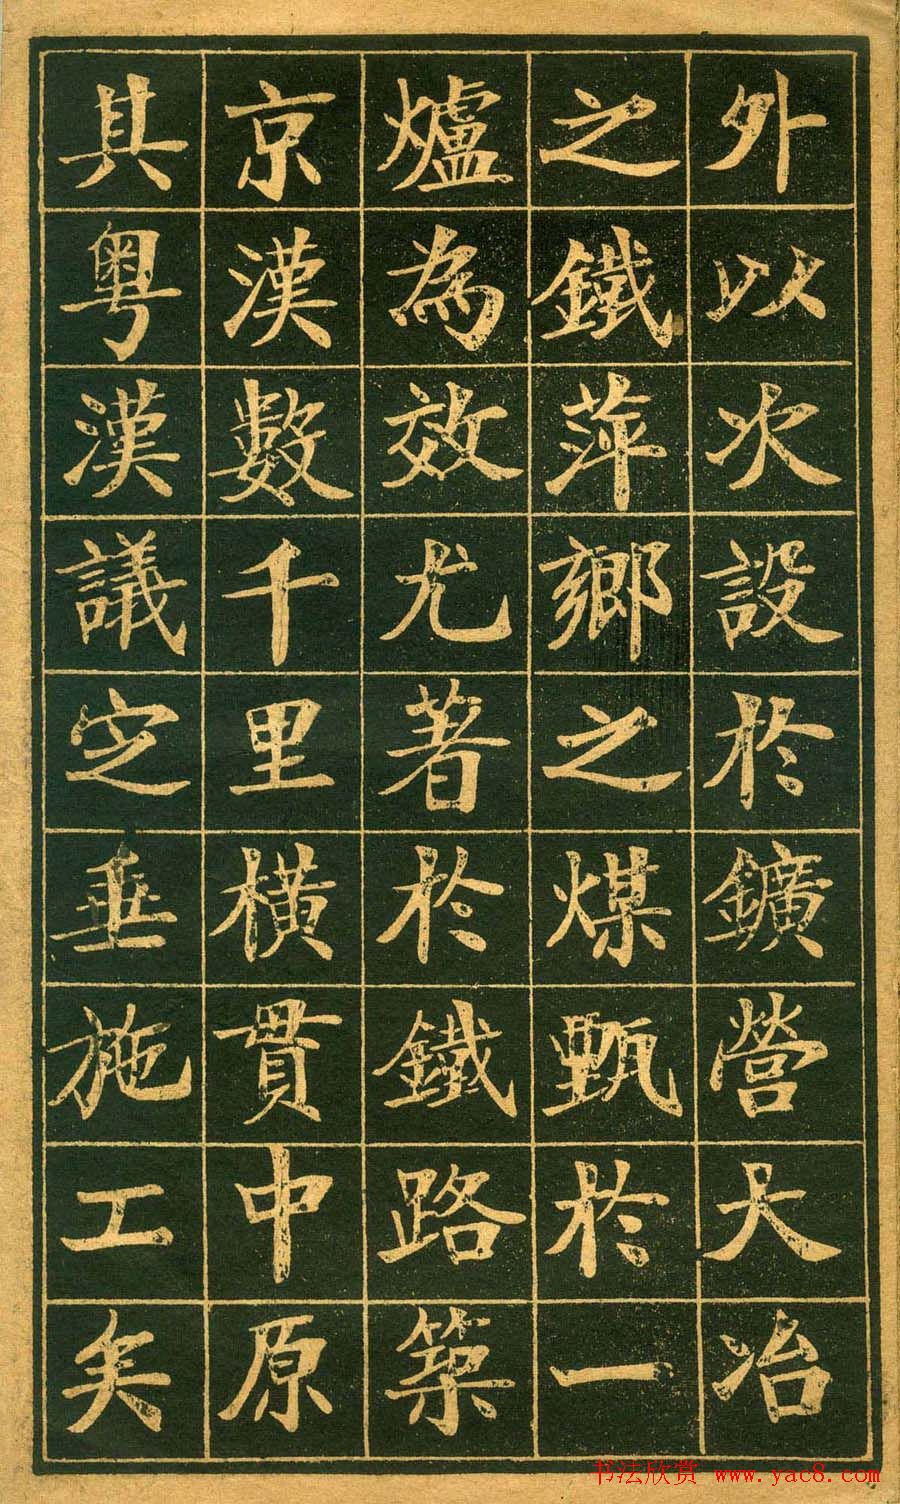 外以次設於鑛營大冶
之鐵萍鄉之煤甄於一
爐為效尤著於鐵路築
京漢數千里橫貫中原
其粵漢議定垂施工矣
书法欣赏 www.yac8.com